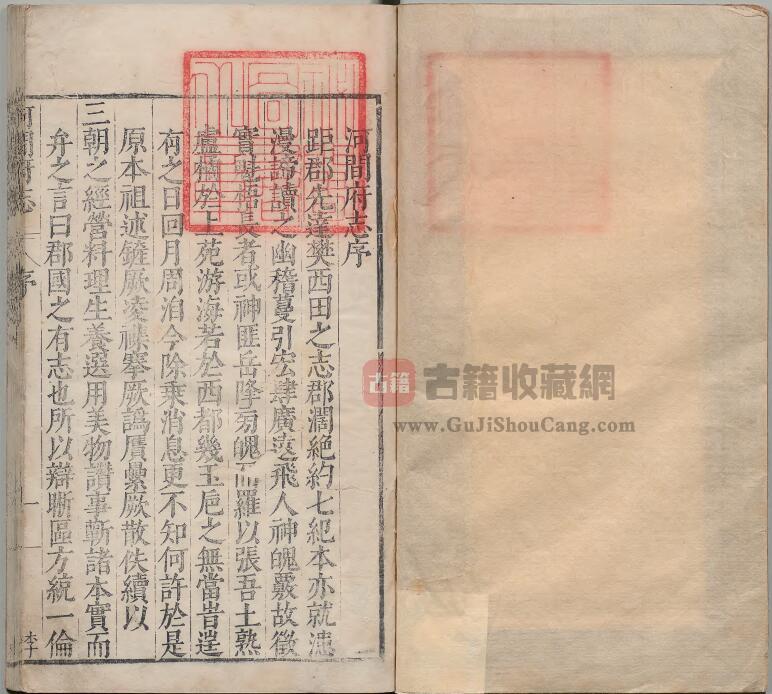 河間府志序
距郡先達樊西田之志郡濶絶約七紀本亦就湮
漫諦讀之幽稽蔓引宏肆廣 飛人神魄覈故徵
實 梧長者或神匪岳降 魄 羅以張吾土熟
盧橘於上苑游海若於西都幾玉巵之無當昔逞
有之日囘月周洎今除乘消息更不知何許於是
原本祖述鏟厥凌襍搴厥譌贋纍厥散佚續以
三朝之經營料理生養選用美物讃事斬諸本實而
弁之言曰郡國之有志也所以辯晣區方統一倫
河間府志
序
一
李
古籍
古籍收藏網
www.GuJiShouCang.com